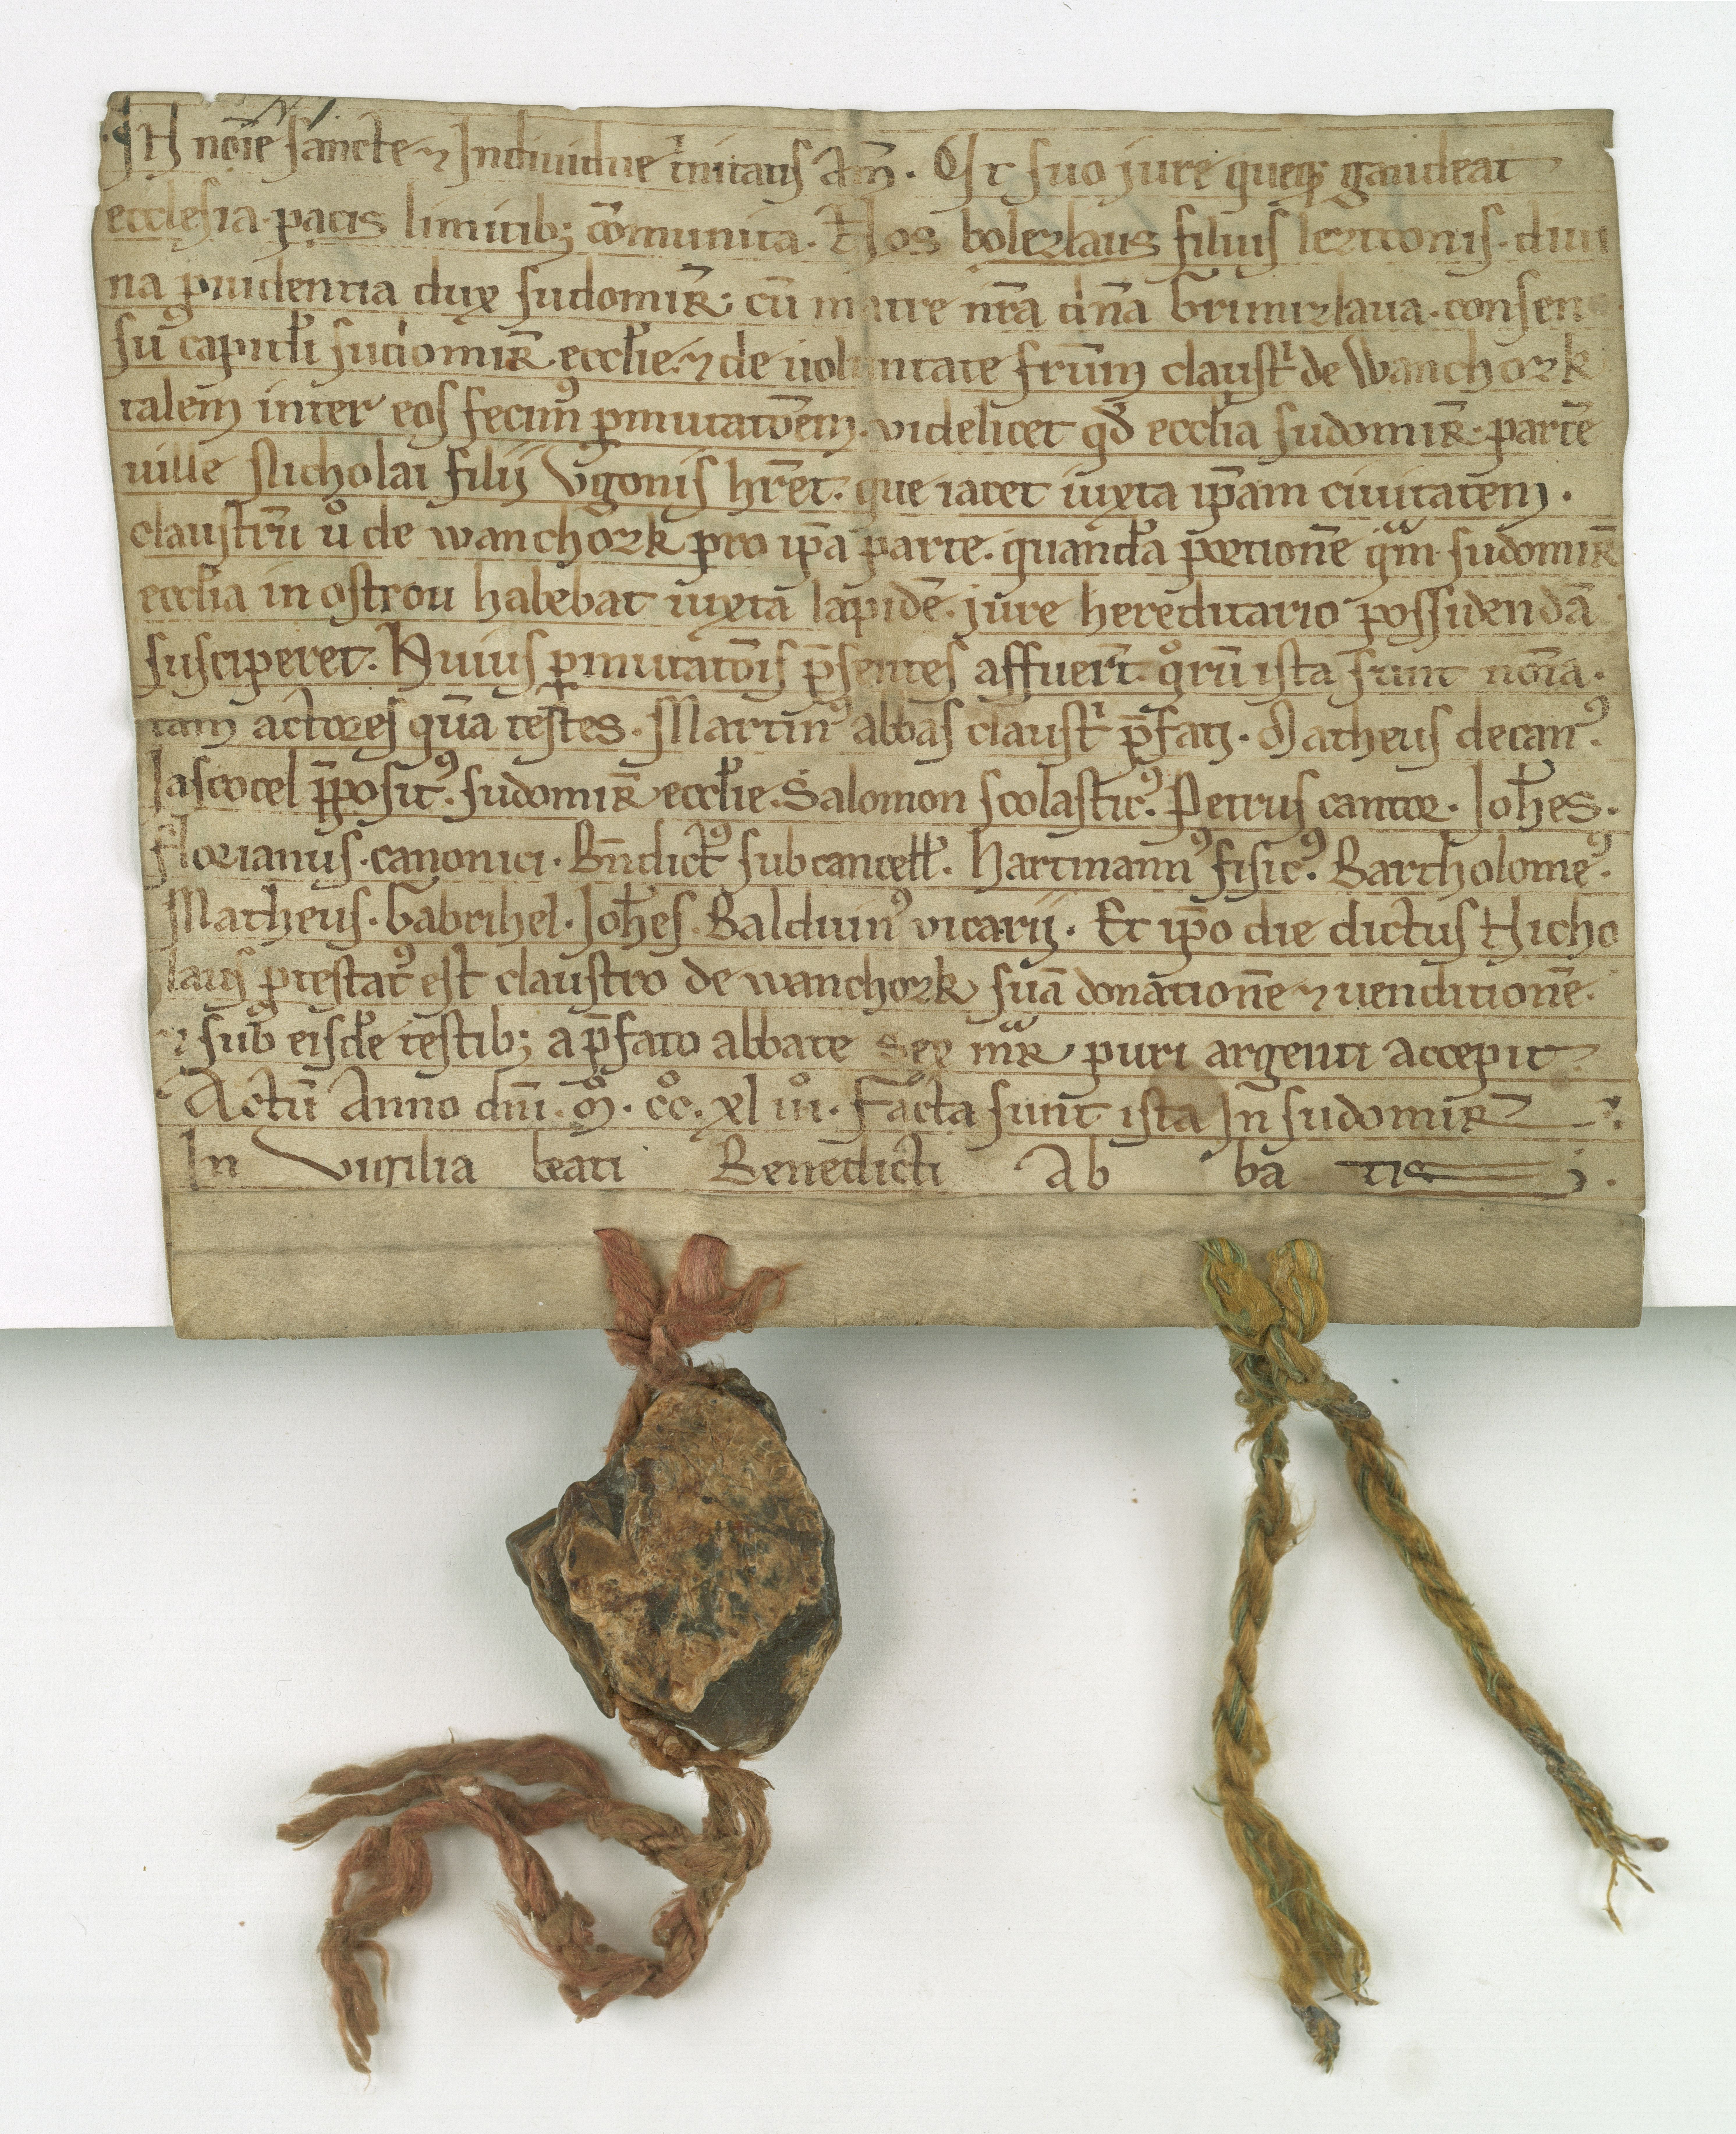 N 1.
IN noīe sancte ⁊ Indiuidue tͥnitatis Am̄. Vt suo jure queqꝫ gaudeat
ecclesia. pacis limitibꝫ cōmunita. Nos bolezlaus filius leztconis. diui
na ꝓuidentia dux sudomiꝝ̄. cū matre nr̄a dn̄a Grimizlaua. consen
su capitłi sudomiꝝ̄. ecctie. ⁊ de uoluntate frūm claustͥ de Wanchozk
talem inter eos fecimꝰ ꝑmutatōem. videlicet qđ ecctia sudomiꝝ̄. partē
uille Nicholai filij Vgonis hr̄et. que iacet iuxta ip̄am ciuitatem.
claustrū uͦ de wanchozk pro ip̄a parte. quandā portionē qᵃm sudomiꝝ̄
ecctia in ostrou habebat iuxta lapidē. jure hereditario possidendā
susciperet. Huius ꝑmutatōis p̄sentes affuer̄t. qͦrū ista sunt noīa.
tam actores qūa testes. Martinꝰ abbas claustͥ p̄fati. Matheus decanꝰ.
Jascocel p̄positꝰ. sudomiꝝ̄ ecctie. Salomon scolasticꝰ. Petrus cantor. Joħes.
florianus. canonici. Bn̄dictꝰ subcancełł. Hartmannꝰ fisicꝰ. Bartholomeꝰ.
Matheus. Gabrihel. Joħes. Balduinꝰ vicarij. Et ip̄o die dictus Nicho
laus ꝓtestatꝰ est claustro de wanchozk suā donationē ⁊ uenditionē.
⁊ sub eisdē testibꝫ a p̄fato abbate sex mᵃꝝ puri argenti accepit.
Actū Anno dn̄i. Mͦ. cͦcͦ. xl iiiͦ. Facta sunt ista In sudomiꝝ
In vigilia beati Benedicti Ab ba tis